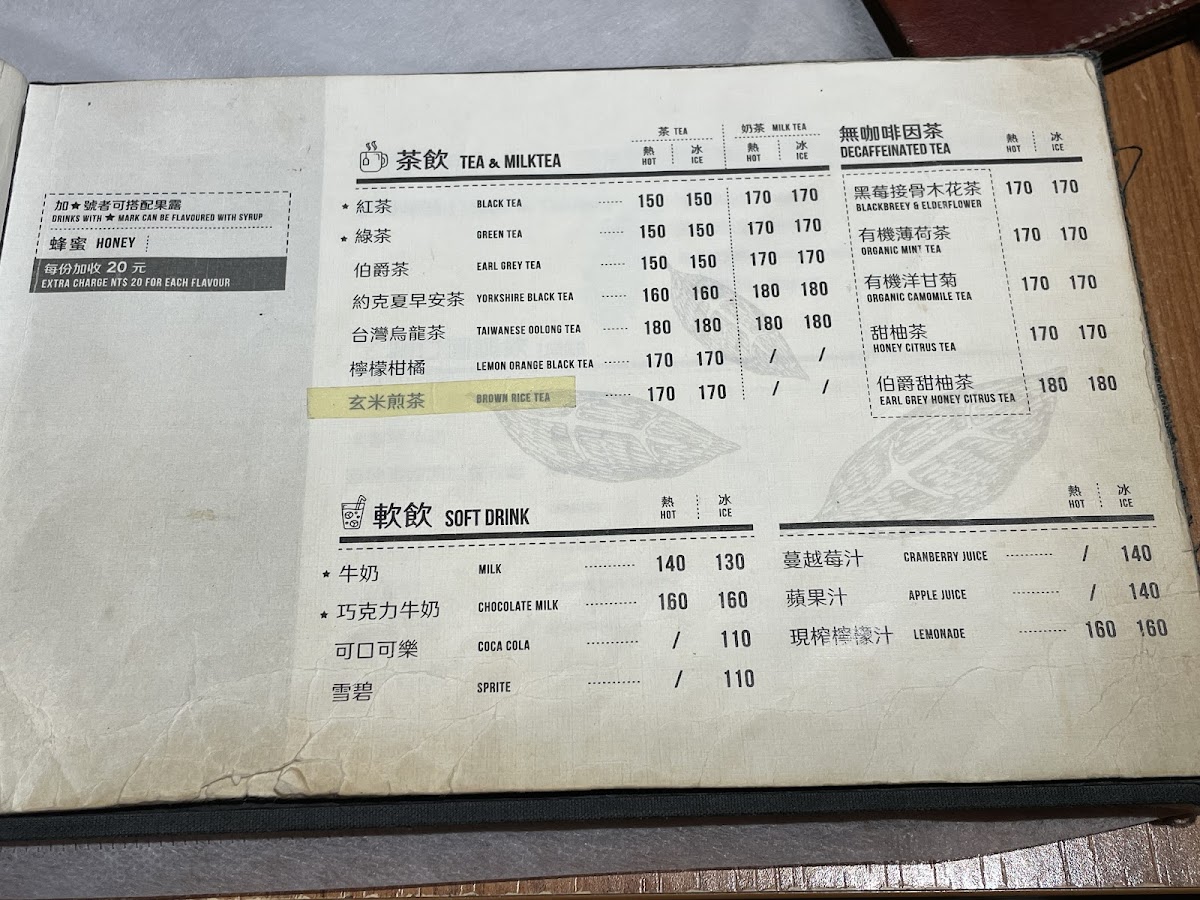 加★號者可搭配果露
DRINKS WITH ★ MARK CAN BE FLAVOURED WITH SYRUP
蜂蜜 HONEY
每份加收 20 元
EXTRA CHARGE NT$ 20 FOR EACH FLAVOUR
茶飲 TEA & MILKTEA
茶 TEA 奶茶 MILK TEA
熱 冰 熱 冰
HOT ICE HOT ICE
★ 紅茶 BLACK TEA 150 150 170 170
★ 綠茶 GREEN TEA 150 150 170 170
伯爵茶 EARL GREY TEA 150 150 170 170
約克夏早安茶 YORKSHIRE BLACK TEA 160 160 180 180
台灣烏龍茶 TAIWANESE OOLONG TEA 180 180 180 180
檸檬柑橘 LEMON ORANGE BLACK TEA 170 170 / /
玄米煎茶 BROWN RICE TEA 170 170 / /
無咖啡因茶
DECAFFEINATED TEA
熱 冰
HOT ICE
黑莓接骨木花茶 170 170
BLACKBREEY & ELDERFLOWER
有機薄荷茶 170 170
ORGANIC MINT TEA
有機洋甘菊 170 170
ORGANIC CAMOMILE TEA
甜柚茶 170 170
HONEY CITRUS TEA
伯爵甜柚茶 180 180
EARL GREY HONEY CITRUS TEA
軟飲 SOFT DRINK
熱 冰
HOT ICE
★ 牛奶 MILK 140 130
★ 巧克力牛奶 CHOCOLATE MILK 160 160
可口可樂 COCA COLA / 110
雪碧 SPRITE / 110
熱 冰
HOT ICE
蔓越莓汁 CRANBERRY JUICE / 140
蘋果汁 APPLE JUICE / 140
現榨檸檬汁 LEMONADE 160 160